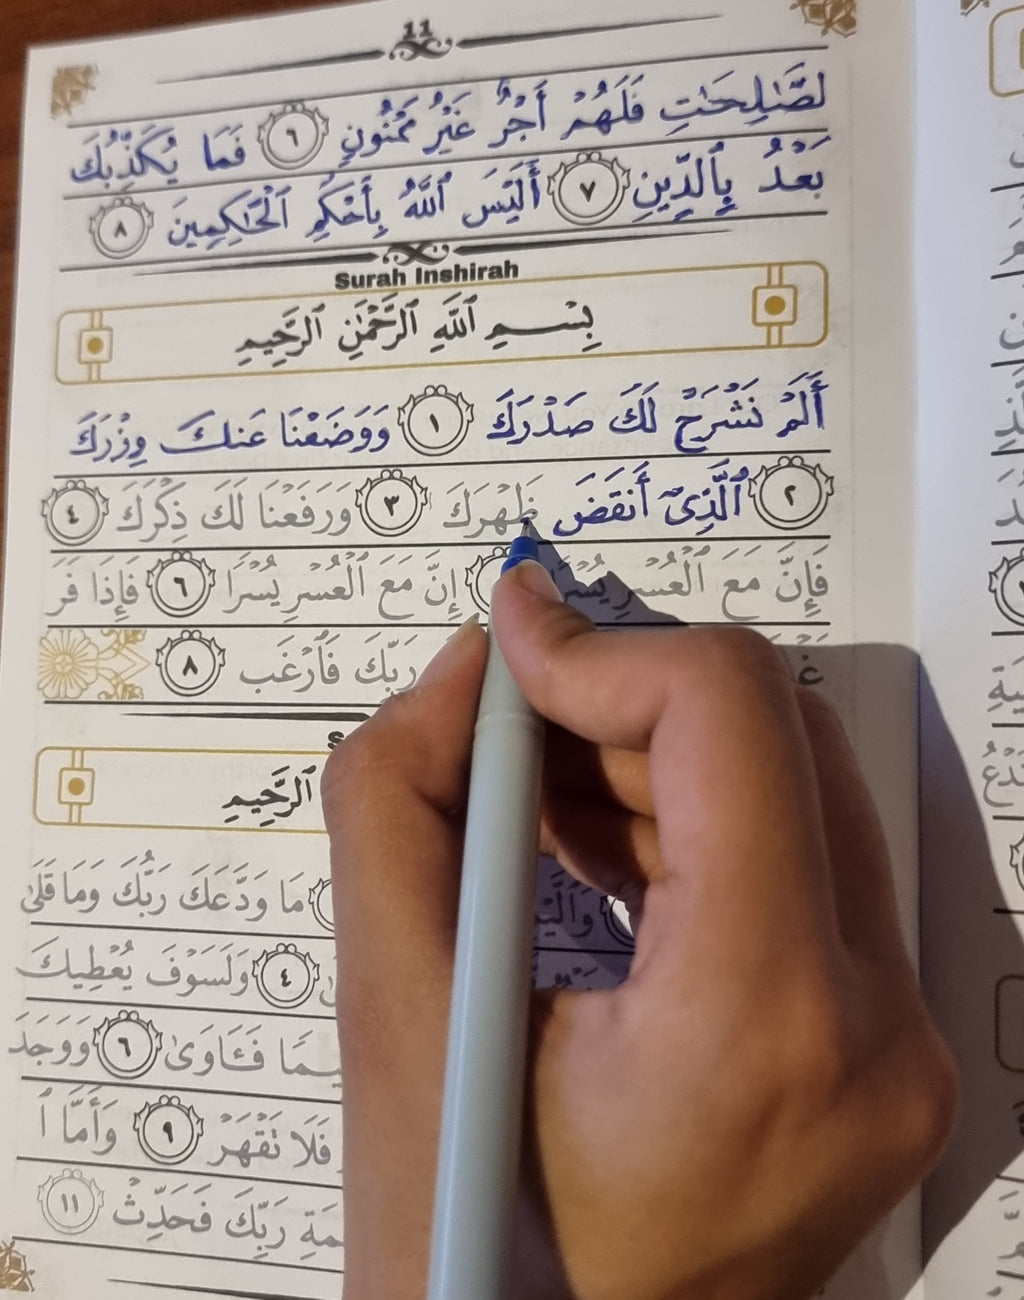 11
لصَّـٰلِحَـٰتِ فَلَهُمْ أَجْرٌ غَيْرُ مَمْنُونٍ ٦ فَمَا يُكَذِّبُكَ
بَعْدُ بِٱلدِّينِ ٧ أَلَيْسَ ٱللَّهُ بِأَحْكَمِ ٱلْحَـٰكِمِينَ ٨
Surah Inshirah
بِسْمِ ٱللَّهِ ٱلرَّحْمَـٰنِ ٱلرَّحِيمِ
أَلَمْ نَشْرَحْ لَكَ صَدْرَكَ ١ وَوَضَعْنَا عَنكَ وِزْرَكَ
٢ ٱلَّذِىٓ أَنقَضَ ظَهْرَكَ ٣ وَرَفَعْنَا لَكَ ذِكْرَكَ ٤
فَإِنَّ مَعَ ٱلْعُسْرِ يُسْرًا إِنَّ مَعَ ٱلْعُسْرِ يُسْرًا ٦ فَإِذَا فَرَ
رَبِّكَ فَٱرْغَب ٨
ٱلرَّحِيمِ
وَٱلَّيْ مَا وَدَّعَكَ رَبُّكَ وَمَا قَلَىٰ
٤ وَلَسَوْفَ يُعْطِيكَ
فَـَٔاوَىٰ ٦ وَوَجَدَ
فَلَا تَقْهَرْ ٩ وَأَمَّا ٱ
مَةِ رَبِّكَ فَحَدِّثْ ١١